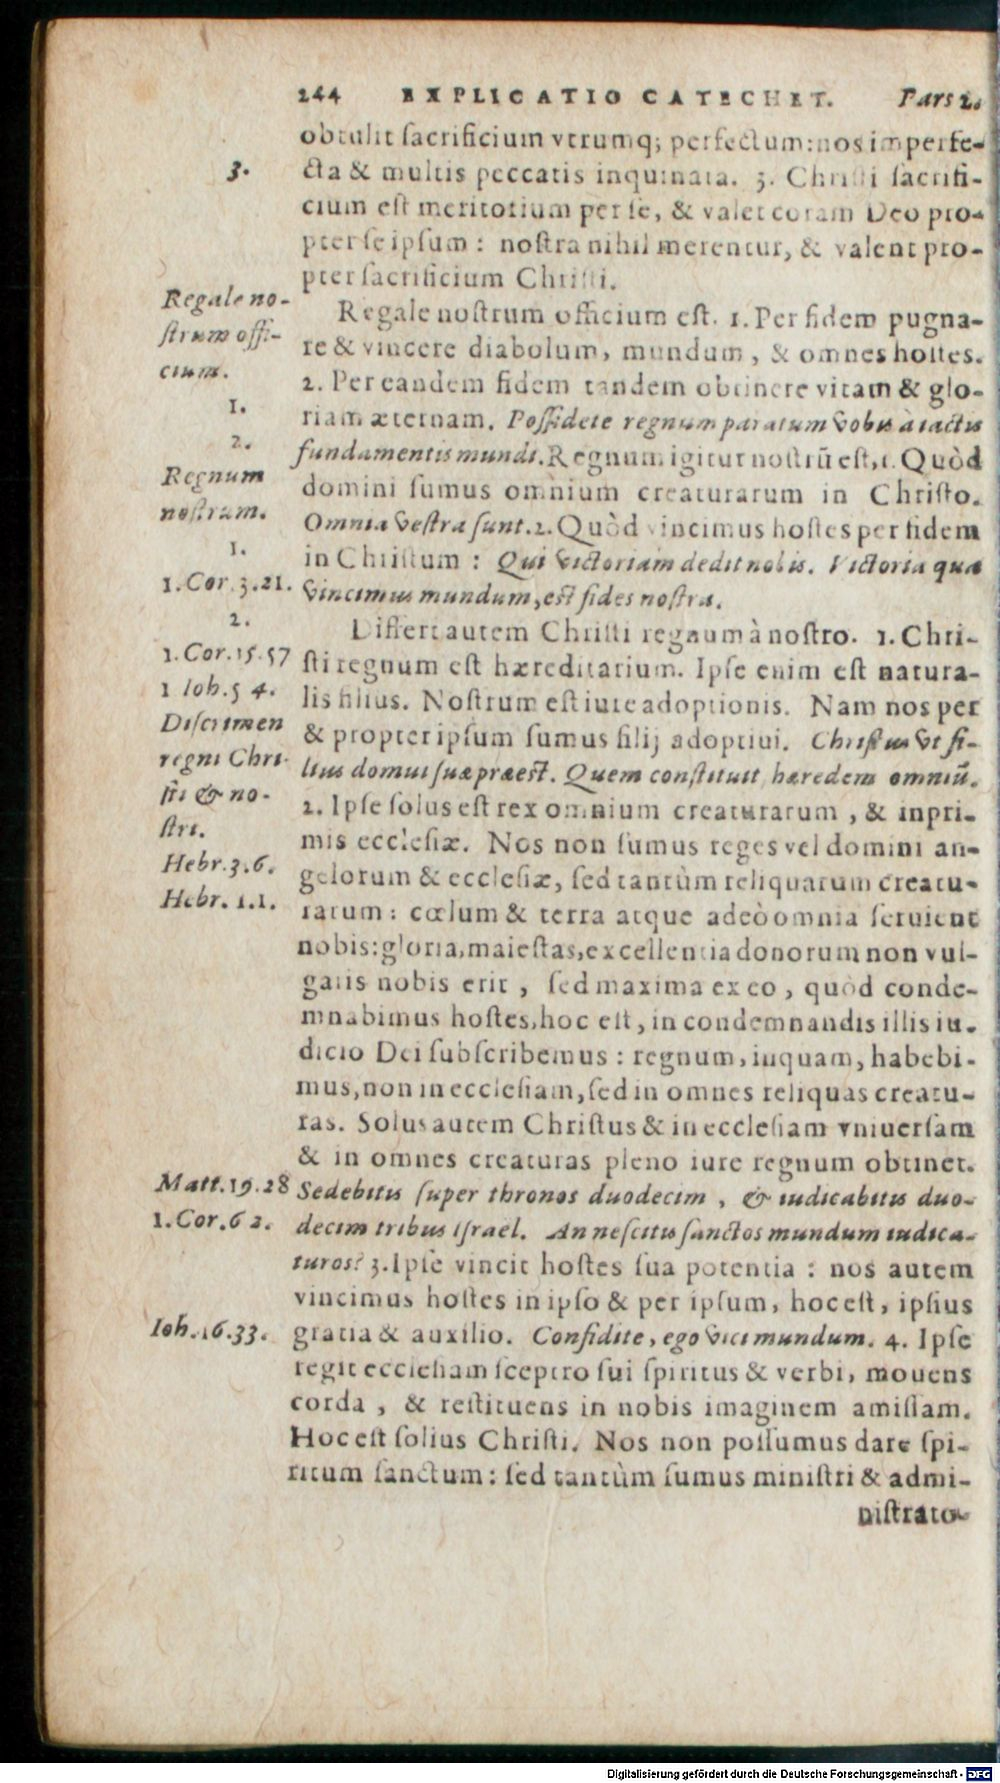 244 EXPLICATIO CATECHET. Pars 2.
obtulit ſacrificium vtrumq; perfectum: nos imperfe-
3.
cta & multis peccatis inquinata. 3. Chriſti ſacrifi-
cium eſt meritorium per ſe, & valet coram Deo pro-
pter ſeipſum : noſtra nihil merentur, & valent pro-
pter ſacrificium Chriſti.
Regale no-
ſtrum offi-
cium.
1.
2.
Regnum
noſtrum.
1.
1.Cor.3.21.
2.
1.Cor.15.57
1 Ioh.5 4.
Diſcrimen
regni Chri-
ſti & no-
ſtri.
Hebr.3.6.
Hebr. 1.1.
Regale noſtrum officium eſt. 1. Per fidem pugna-
re & vincere diabolum, mundum, & omnes hoſtes.
2. Per eandem fidem tandem obtinere vitam & glo-
riam æternam. Poſſidete regnum paratum vobis à iactis
fundamentis mundi. Regnum igitur noſtrũ eſt, 1. Quòd
domini ſumus omnium creaturarum in Chriſto.
Omnia veſtra ſunt. 2. Quòd vincimus hoſtes per fidem
in Chriſtum : Qui victoriam dedit nobis. Victoria qua
vincimus mundum, eſt fides noſtra.
Differt autem Chriſti regnum à noſtro. 1. Chri-
ſti regnum eſt hæreditarium. Ipſe enim eſt natura-
lis filius. Noſtrum eſt iure adoptionis. Nam nos per
& propter ipſum ſumus filij adoptiui. Chriſtus vt fi-
lius domui ſuæ præeſt. Quem conſtituit hæredem omniũ.
2. Ipſe ſolus eſt rex omnium creaturarum, & inpri-
mis eccleſiæ. Nos non ſumus reges vel domini an-
gelorum & eccleſiæ, ſed tantùm reliquarum creatu-
rarum : cœlum & terra atque adeò omnia ſeruient
nobis: gloria, maieſtas, excellentia donorum non vul-
garis nobis erit, ſed maxima ex eo, quòd conde-
mnabimus hoſtes, hoc eſt, in condemnandis illis iu-
dicio Dei ſubſcribemus : regnum, inquam, habebi-
mus, non in eccleſiam, ſed in omnes reliquas creatu-
ras. Solus autem Chriſtus & in eccleſiam vniuerſam
& in omnes creaturas pleno iure regnum obtinet.
Matt.19.28
Sedebitis ſuper thronos duodecim, & iudicabitis duo-
1.Cor.6 2.
decim tribus Iſrael. An neſcitis ſanctos mundum iudica-
turos? 3. Ipſe vincit hoſtes ſua potentia : nos autem
vincimus hoſtes in ipſo & per ipſum, hoc eſt, ipſius
Ioh.16.33.
gratia & auxilio. Confidite, ego vici mundum. 4. Ipſe
regit eccleſiam ſceptro ſui ſpiritus & verbi, mouens
corda, & reſtituens in nobis imaginem amiſſam.
Hoc eſt ſolius Chriſti. Nos non poſſumus dare ſpi-
ritum ſanctum : ſed tantùm ſumus miniſtri & admi-
niſtrato-
Digitalisierung gefördert durch die Deutsche Forschungsgemeinschaft - DFG